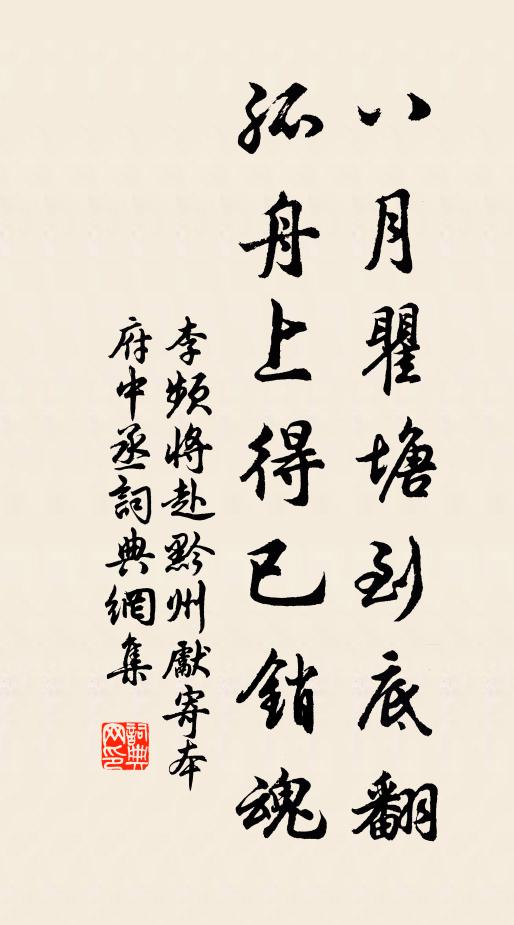 八月瞿塘到底翻
孤舟上得已銷魂
李頻將赴黔州獻寄本
府中丞詞典網集
詞典
网印